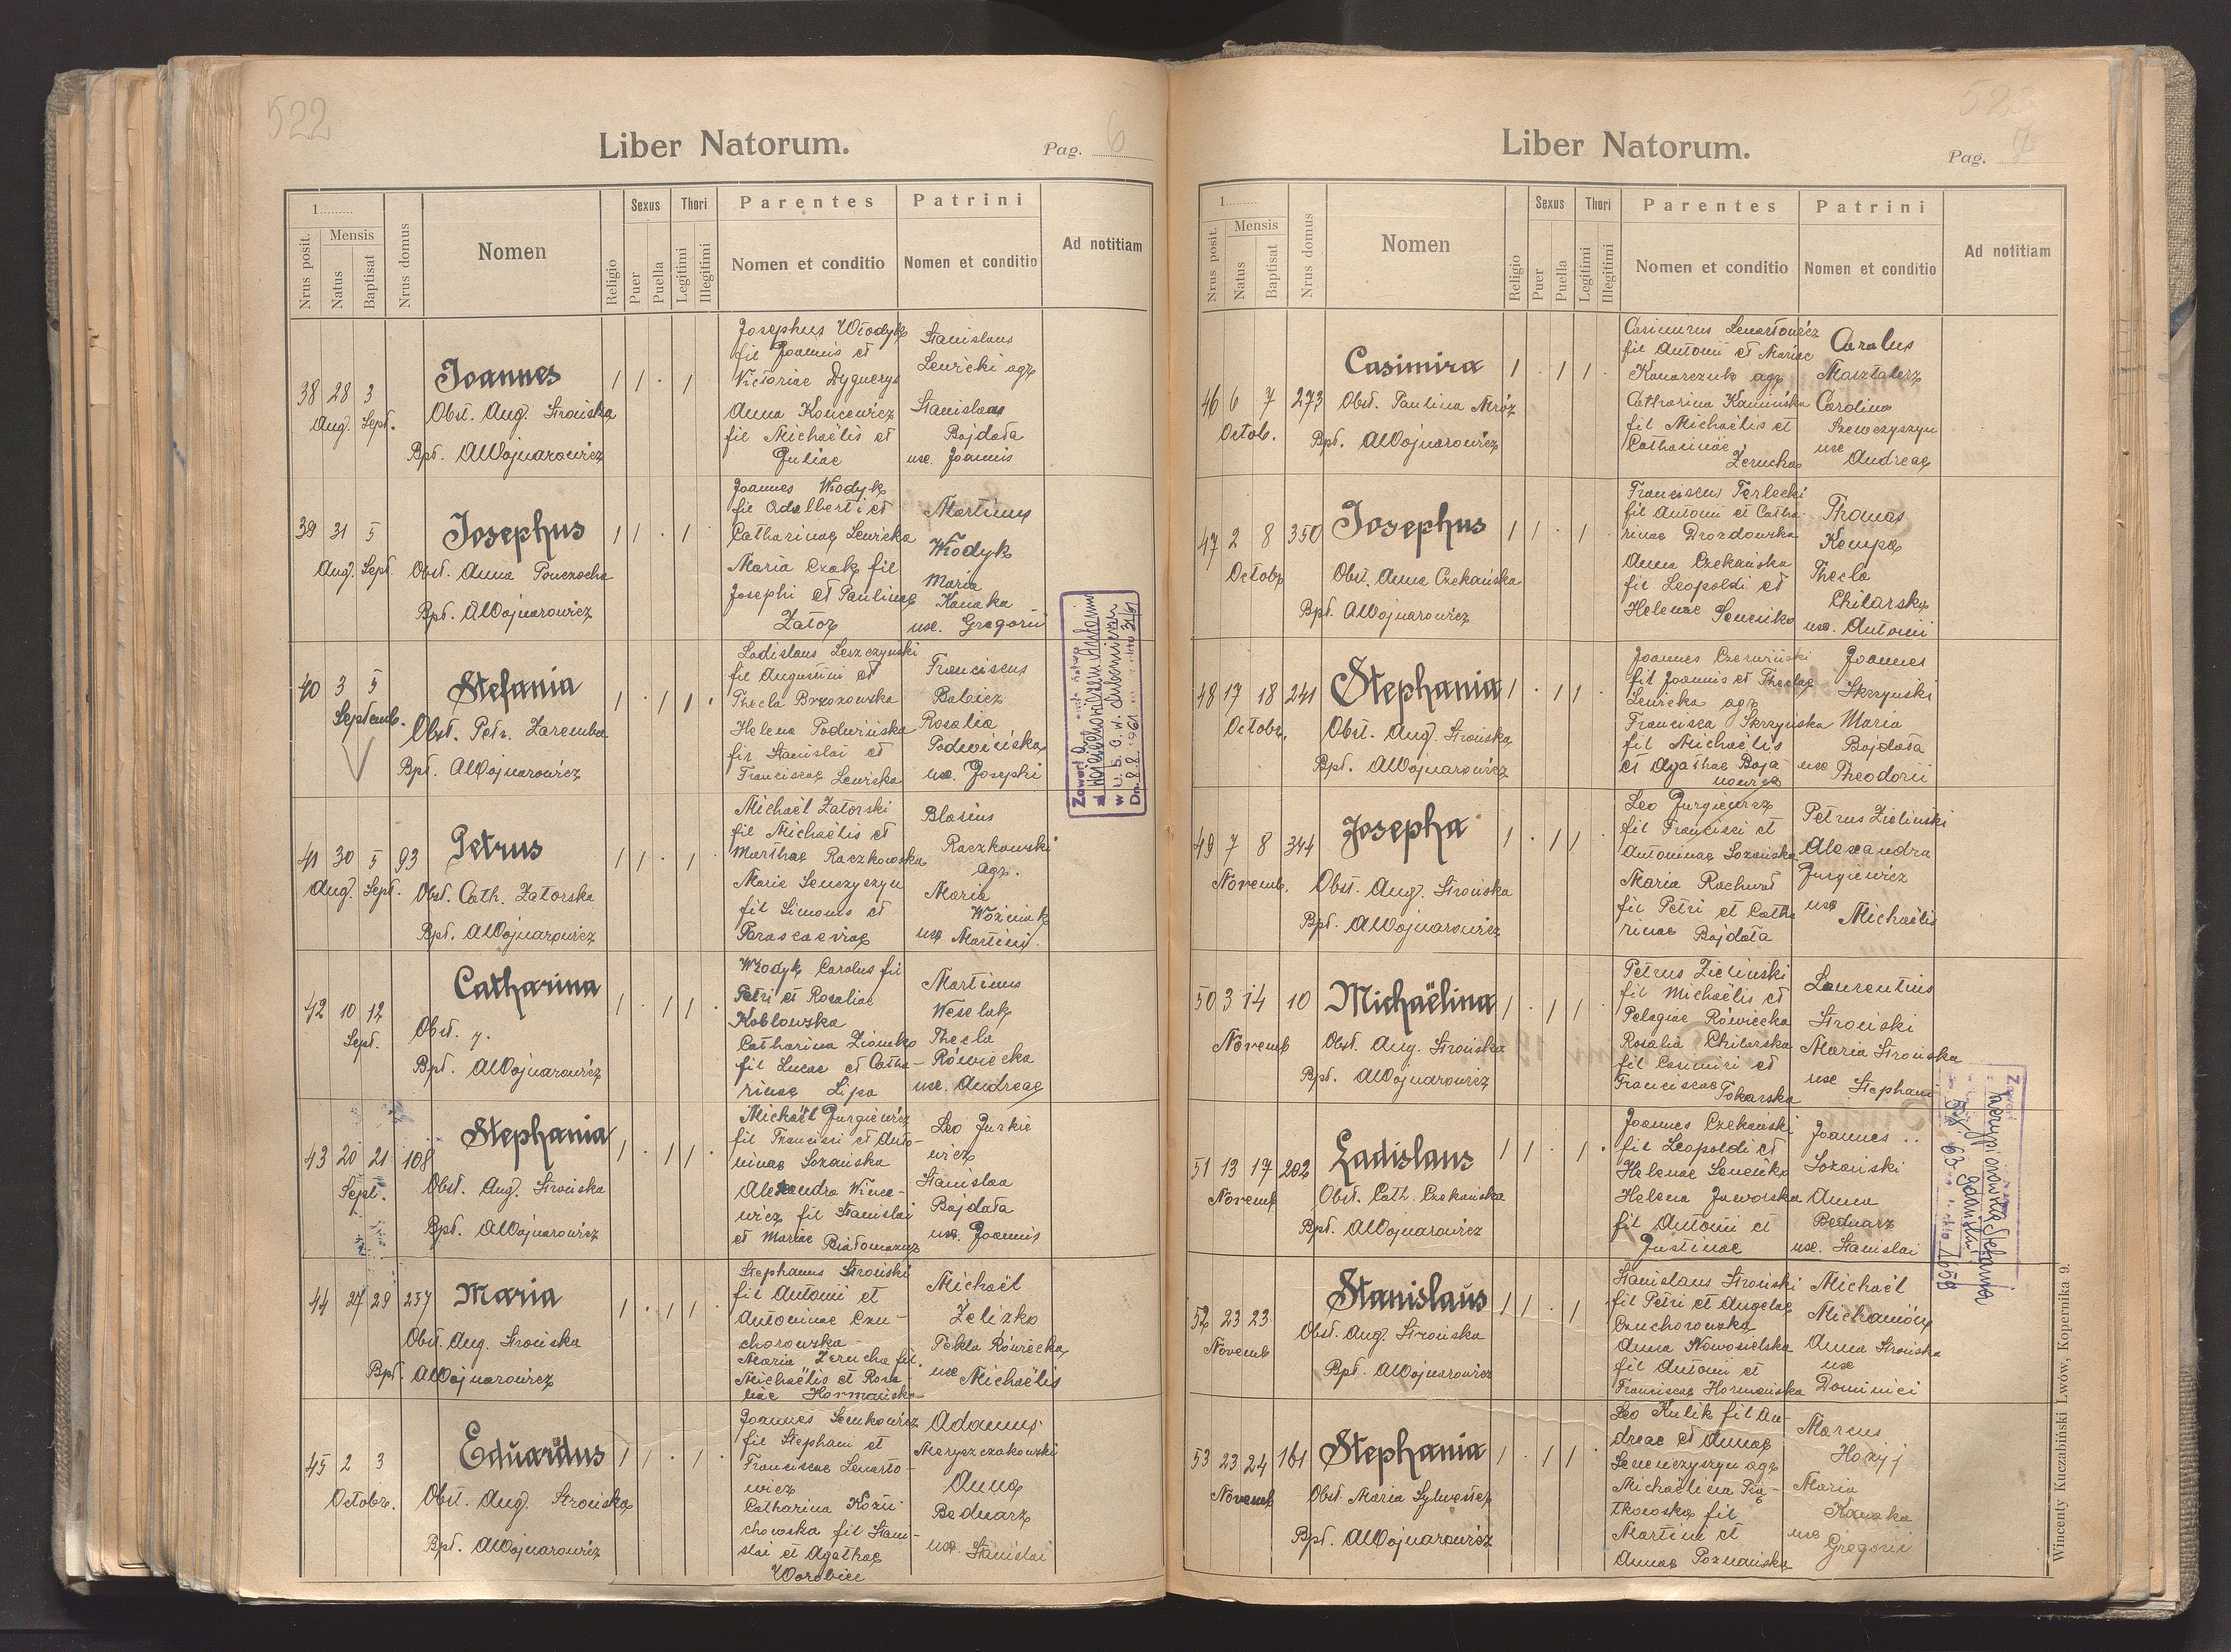 522
Liber Natorum.
Pag. 6
1
Nrus posit.
Mensis
Natus
Baptisat
Nrus domus
Nomen
Religio
Sexus
Puer
Puella
Thori
Legitimi
Illegitimi
Parentes
Nomen et conditio
Patrini
Nomen et conditio
Ad notitiam
38 28 3
Aug. Sept.
Joannes
Obst. Aug. Strońska
Bpt. AWojnarowicz
1 1 . 1 .
Josephus Włodyk
fil Joannis et
Victoriae
Anna Koncewicz
fil Michaëlis et
Juliae
Stanislaus
Lewicki agr
Stanislaa
Bojdała
ux. Joannis
39 31 5
Aug. Sept.
Josephus
Obst. Anna Ponczocha
Bpt. AWojnarowicz
1 1 . 1 .
Joannes Włodyk
fil Adalberti et
Catharinae Lewicka
Maria Czok fil
Josephi et Paulinae
Zator
Martinus
Włodyk
Maria
Kanaka
ux. Gregorii
40 3 5
Septemb.
Stefania
Obst. Petr. Zaremba
Bpt. AWojnarowicz
1 . 1 1 .
Ladislaus Leszczynski
fil Augustini et
Thecla Brzozowska
Helena Podwińska
fil Stanislai et
Franciscae Lewicka
Franciscus
Baloicz
Rosalia
Podwińska
ux. Josephi
Zawarł
w U. S. C. w
Dn. 8.8. 1961
41 30 5 93
Aug. Sept.
Petrus
Obst. Cath. Zatorska
Bpt. AWojnarowicz
1 1 . 1 .
Michaël Zatorski
fil Michaëlis et
Marthae Raczkowska
Maria Senczyszyn
fil Simonis et
Parascaeviae
Blasius
Raczkowski
agr.
Maria
Woźniak
ux Martini
42 10 12
Sept.
Catharina
Obst. 7.
Bpt. AWojnarowicz
1 . 1 1 .
Włodyk Carolus fil
Petri et Rosaliae
Kobłowska
Catharina Ziomko
fil Lucae et Catha-
rinae Lipa
Martinus
Weselak
Thecla
Rówiecka
ux. Andreae
43 20 21 108
Sept.
Stephania
Obst. Aug. Strońska
Bpt. AWojnarowicz
1 . 1 1 .
Michaël Jurgiewicz
fil Francisci et Anto-
ninae Łozańska
Alexandra Wince-
wicz fil Stanislai
et Mariae Białomazur
Leo Jurkie
wicz
Stanislaa
Bojdała
ux. Joannis
44 27 29 257
Maria
Obst. Aug. Strońska
Bpt. AWojnarowicz
1 . 1 1 .
Stephanus Stroński
fil Antonii et
Antoninae Czu-
chorowska
Maria Zerucha fil.
Michaëlis et Rosa-
liae Hormańska
Michaël
Żeliżko
Tekla Rówiecka
ux Michaëlis
45 2 3
Octobr.
Eduardus
Obst. Aug. Strońska
Bpt. AWojnarowicz
1 1 . 1 .
Joannes Senkowicz
fil Stephani et
Franciscae Lenarto-
wicz
Catharina Kozii
chowska fil Stani-
slai et Agathae
Worobiec
Adamus
Maryszczakowski
Anna
Bednarz
ux. Stanislai
523
Liber Natorum.
Pag. 7
1
Nrus posit.
Mensis
Natus
Baptisat
Nrus domus
Nomen
Religio
Sexus
Puer
Puella
Thori
Legitimi
Illegitimi
Parentes
Nomen et conditio
Patrini
Nomen et conditio
Ad notitiam
46 6 7 273
Octob.
Casimira
Obst. Paulina Mróz
Bpt. AWojnarowicz
1 . 1 1 .
Casimirus Lenartowicz
fil Antonii et Mariae
Konarczuk agr
Catharina Kamińska
fil Michaëlis et
Catharinae
Zerucha
Carolus
Masztalerz
Carolina
Szewczyszyn
ux
Andreae
47 2 8 350
Octobr
Josephus
Obst. Anna Czekańska
Bpt. AWojnarowicz
1 1 . 1 .
Franciscus Terlecki
fil Antonii et Catha-
rinae Drozdowska
Anna Czekańska
fil Leopoldi et
Helenae Senenko
Thomas
Kempa
Thecla
Chilarska
ux. Antonii
48 17 18 241
Octobr.
Stephania
Obst. Aug. Strońska
Bpt. AWojnarowicz
1 . 1 1 .
Joannes Czerwiński
fil Joannis et Theclae
Lewicka agr
Francisca Skrzyńska
fil Michaëlis
et Agathae Boja
nowicz
Joannes
Skrzynski
Maria
Bojdała
ux Theodorii
49 7 8 344
Novemb.
Josepha
Obst. Aug. Strońska
Bpt. AWojnarowicz
1 . 1 1
Leo Jurgiewicz
fil Francisci et
Antoninae Łozańska
Maria Rachwał
fil Petri et Catha
rinae Bojdała
Petrus Zieliński
Alexandra
Jurgiewicz
ux
Michaëlis
50 3 14 10
Novemb
Michaëlina
Obst. Aug. Strońska
Bpt. AWojnarowicz
1 . 1 1 .
Petrus Zieliński
fil Michaëlis et
Pelagiae Rówiecka
Rosalia Chilarska
fil Casimiri et
Franciscae
Tokarska
Laurentius
Stroński
Maria Strońska
ux Stephani
51 13 17 202
Novemb
Ladislaus
Obst. Cath. Czekańska
Bpt. AWojnarowicz
1 1 . 1 .
Joannes Czekański
fil Leopoldi et
Helenae Senenko
Helena Jaworska
fil Antonii et
Justinae
Joannes
Łozański
Anna
Bednarz
ux. Stanislai
52 23 23
Novemb
Stanislaus
Obst. Aug. Strońska
Bpt. AWojnarowicz
1 1 . 1
Stanislaus Stroński
fil Petri et Angelae
Czuchorowska
Anna Nowosielska
fil Antonii et
Franciscae Hormańska
Michaël
Michamów
Anna Strońska
ux
Dominici
53 23 24 161
Novemb
Stephania
Obst. Maria Sylwester
Bpt. AWojnarowicz
1 . 1 1 .
Leo Kulik fil An-
dreae et Annae
Senenczyszyn agr
Michaëlina Pią-
tkowska fil
Martini et
Annae Poznańska
Marcus
Hozyj
Maria
Kanaka
ux
Gregorii
Wincenty Kuczabiński Lwów, Kopernika 9.